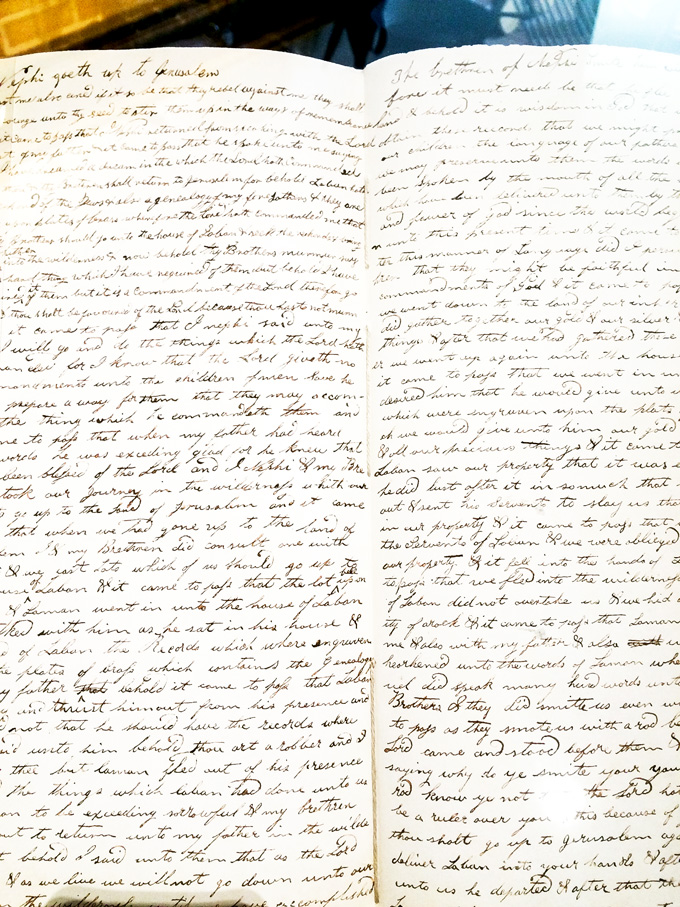 Nephi goeth up to Jerusalem
me also and if it so be that they rebel against me they shall
scourge unto thy seed to stir them up in the ways of remembrance
it came to pass that I Nephi returned from speaking with the Lord
it came to pass that he spake unto me saying
dreamed a dream in the which the Lord hath commanded
thy Brethren shall return to Jerusalem for behold Laban hath
of the Jews & also a genealogy of my forefathers & they are
plates of brass wherefore the Lord hath commanded me that
thy brother should go unto the house of Laban & seek the records
into the wilderness & now behold thy Brothers murmur
hard thing which I have required of them but behold I have
of them but it is a commandment of the Lord therefore go
thou shalt be favoured of the Lord because thou hast not murm
it came to pass that I nephi said unto my
I will go and do the things which the Lord hath
manded for I know that the Lord giveth no
mandments unto the children of men save he
prepare a way for them that they may accom-
the thing which he commandeth them and
me to pass that when my father had heard
words he was exceding glad for he knew that
been blessed of the Lord and I Nephi & my Bre
took our Journey in the wilderness with our
to go up to the land of Jerusalem and it came
that when we had gone up to the land of
em I & my Brethren did consult one with
& we cast lots which of us should go up to
use of Laban & it came to pass that the lot fell upon
& Laman went in unto the house of Laban
lked with him as he sat in his house &
d of Laban the Records which where engraven
he plates of brass which contains the genealogy
y father that behold it came to pass that Laban
and thrust him out from his presence and
not that he should have the records where
aid unto him behold thou art a robber and I
thee but laman fled out of his presence
the things which laban had done unto us
an to be exceding sorrowful & my brethren
out to return unto my father in the wilde
t behold I said unto them that as the Lord
& as we live we will not go down unto our
have accomplished
The brethren of Nephi
fore it must needs be that
& behold it is wisdom in God
obtain these records that we might
our children the language of our fathers
we may preserve unto them the words
been spoken by the mouth of all the
which have been delivered unto them by the
and power of god since the world beg
unto this present time & it came to
this manner of language did I
that they might be faithful in
commandments of God & it came to pass
we went down to the land of our inher
did gather together our gold & our silver
things & after that we had gathered these
er we went up again unto the house
it came to pass that we went in un
desired him that he would give unto us
which were engraven upon the plates
ch we would give unto him our gold
& all our precious things & it came to
Laban saw our property that it was
he did lust after it insomuch that
out & sent his Servents to slay us that
in our property & it came to pass that
the Servents of Laban & we were obliged
our property & it fell into the hands of
to pass that we fled into the wilderness
of Laban did not overtake us & we hid
ity of a rock & it came to pass that Laman
me & also with my father & also with
hearkened unto the words of Laman where
uel did speak many hard words unto
Brothers & they did smite us even with
to pass as they smote us with a rod be
Lord came and stood before them &
saying why do ye smite your you
rod know ye not the Lord hath
be a ruler over you this because of
thou shalt go up to Jerusalem aga
deliver Laban into your hands & after
unto us he departed & after that the